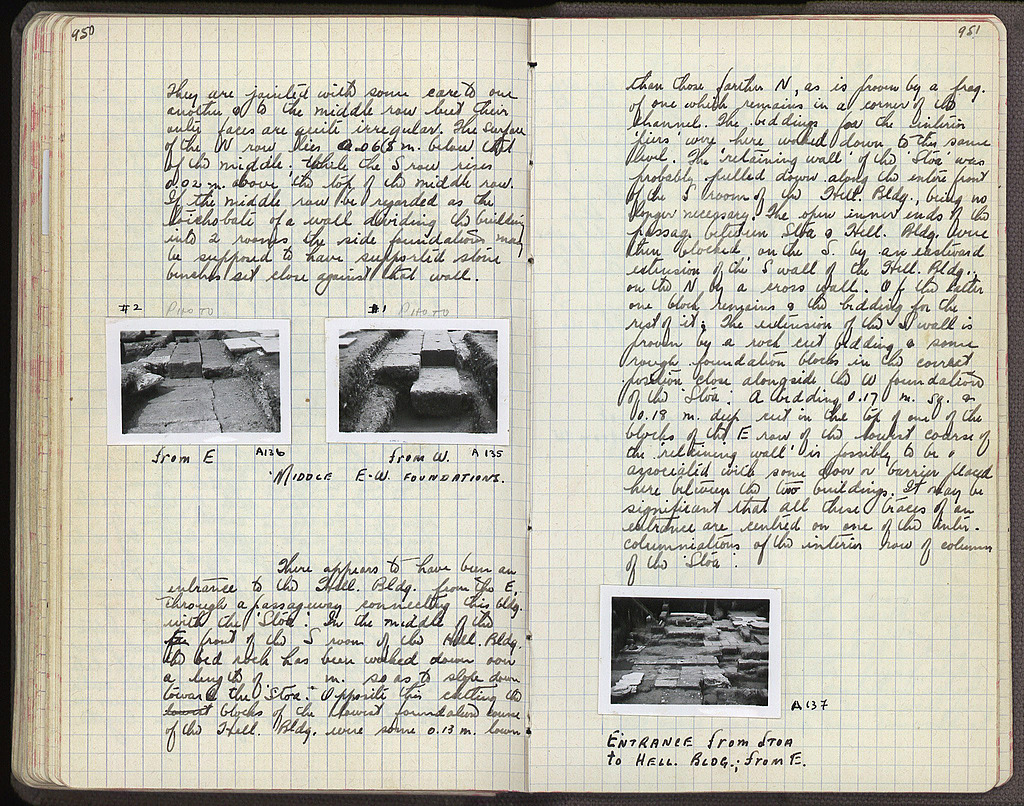 950
They are jointed with some care to one
another & to the middle row but their
outer faces are quite irregular. The surface
of the N row lies 0.065 m. below that
of the middle; while the S row rises
0.02 m. above the top of the middle row.
If the middle row be regarded as the
toichobate of a wall dividing the building
into 2 rooms the side foundations may
be supposed to have supported stone
benches set close against that wall.
#2 PHOTO #1 PHOTO
from E A136 from W. A135
MIDDLE E-W. FOUNDATIONS.
There appears to have been an
entrance to the Hell. Bldg. from the E,
through a passageway connecting this bldg.
with the 'Stoa'. In the middle of the
front of the S room of the Hell. Bldg.
the bed rock has been worked down over
a length of m. so as to slope down
toward the 'Stoa.' Opposite this cutting the
blocks of the lowest foundation course
of the Hell. Bldg. were some 0.13 m. lower
951
than those farther N, as is proven by a frag.
of one which remains in a corner of the
channel. The beddings for the interior
'piers' were here worked down to this same
level. The 'retaining wall' of the 'Stoa' was
probably pulled down along the entire front
of the S room of the Hell. Bldg., being no
longer necessary. The open inner ends of the
passage between Stoa & Hell. Bldg. were
then blocked, on the S. by an eastward
extension of the S wall of the Hell. Bldg.,
on the N by a cross wall. Of the latter
one block remains & the bedding for the
rest of it; The extension of the S wall is
proven by a rock cut bedding & some
rough foundation blocks in the correct
position close alongside the W foundation
of the 'Stoa'. A bedding 0.17 m. sq. &
0.18 m. deep cut in the top of one of the
blocks of the E row of the lowest course of
the 'retaining wall' is possibly to be
associated with some door or barrier placed
here between the two buildings. It may be
significant that all these traces of an
entrance are centred on one of the inter-
columniations of the interior row of columns
of the 'Stoa'.
A137
ENTRANCE from STOA
to HELL. BLDG.; from E.